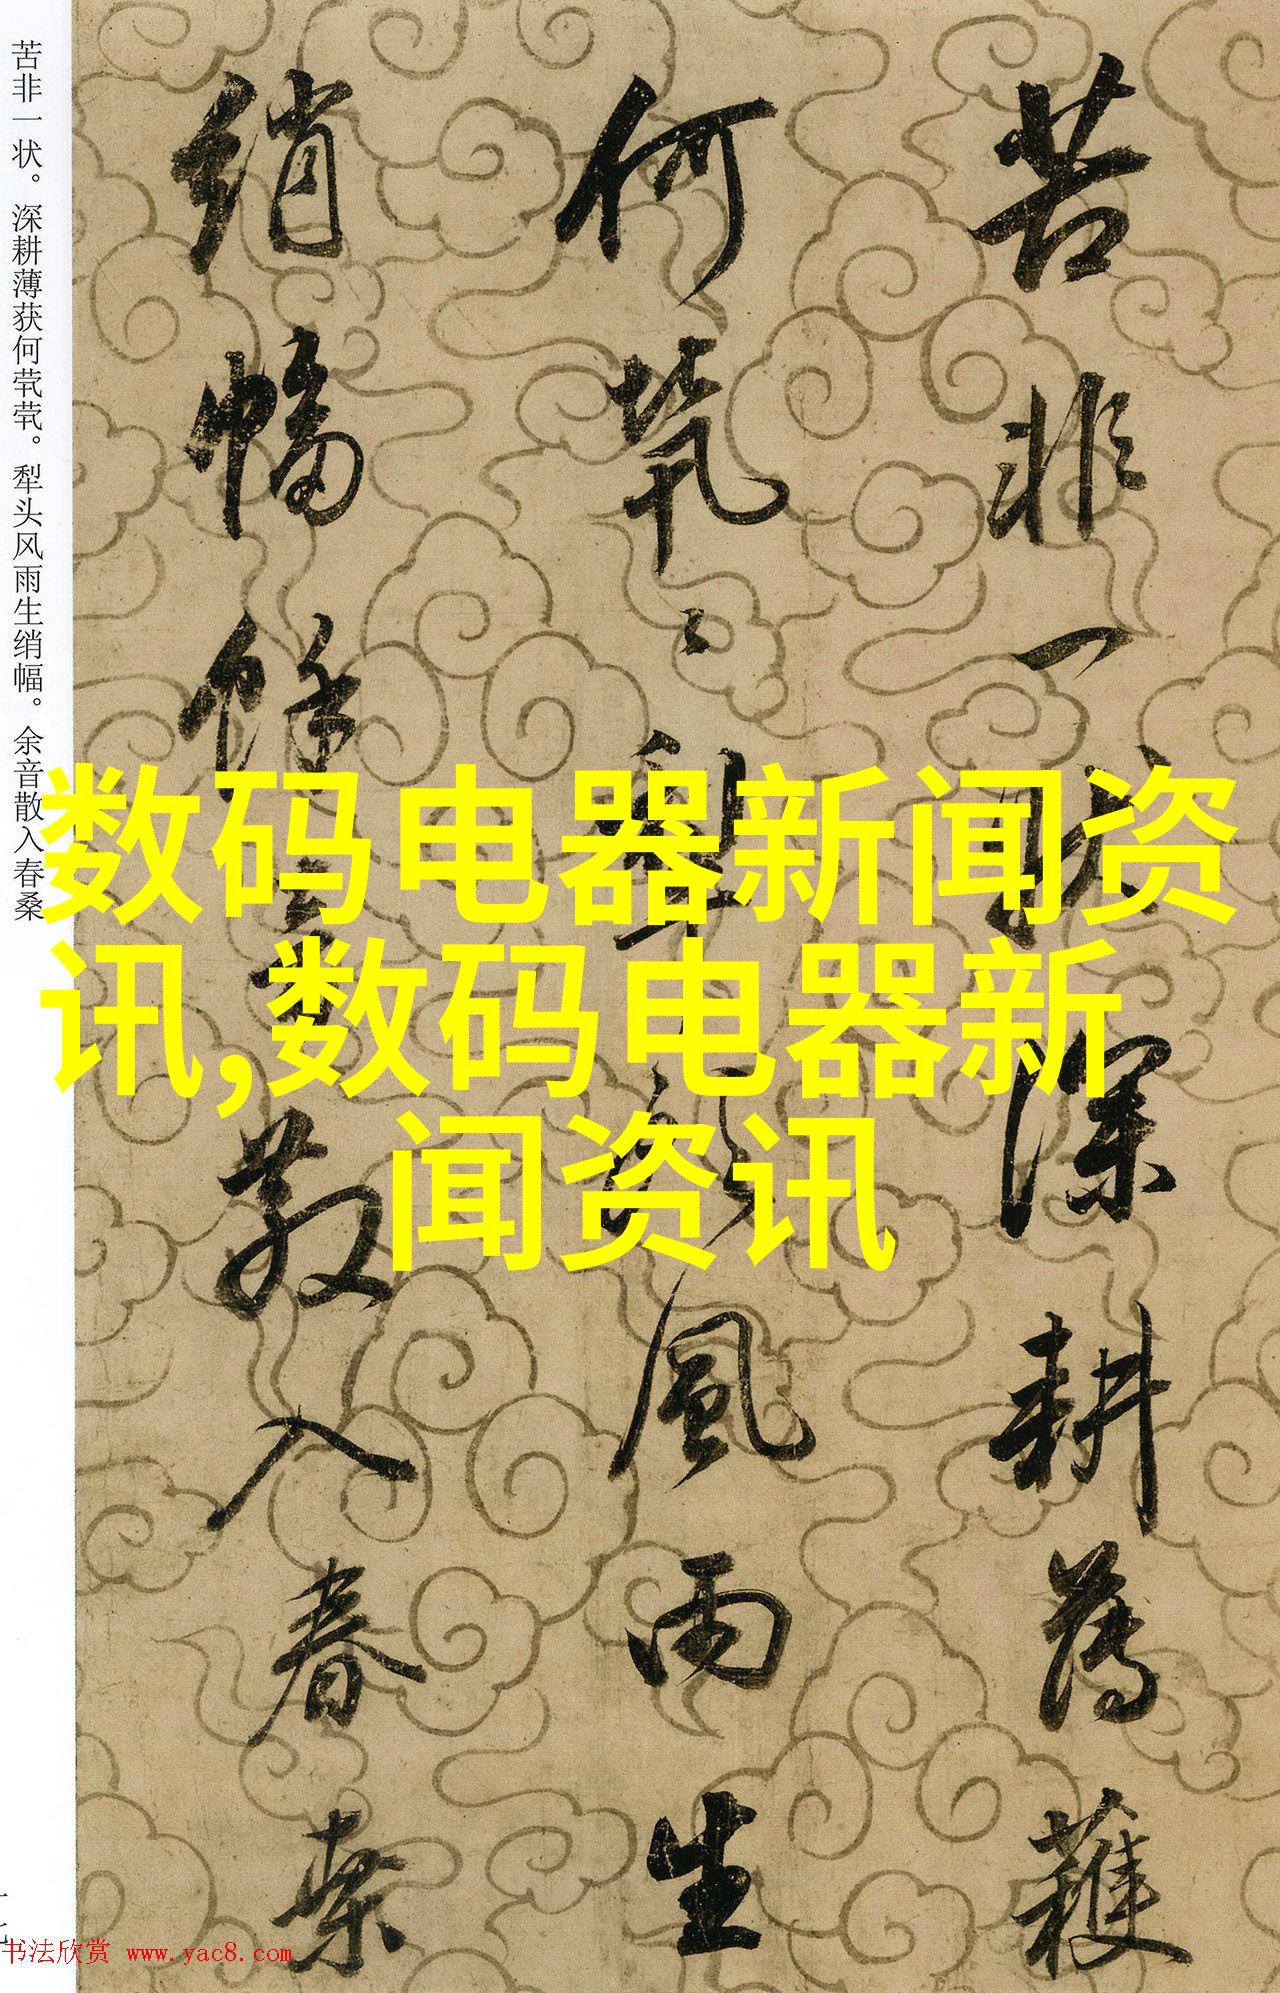 苦非一状深耕薄穫
何茕〻犁头風雨生
绡幅馀音散入春桑
苦非一状。深耕薄获何茕茕。犁头风雨生绡幅。余音散入春桑
数码电器新闻资
讯,数码电器新
闻资讯
书法欣赏 www.yac8.com